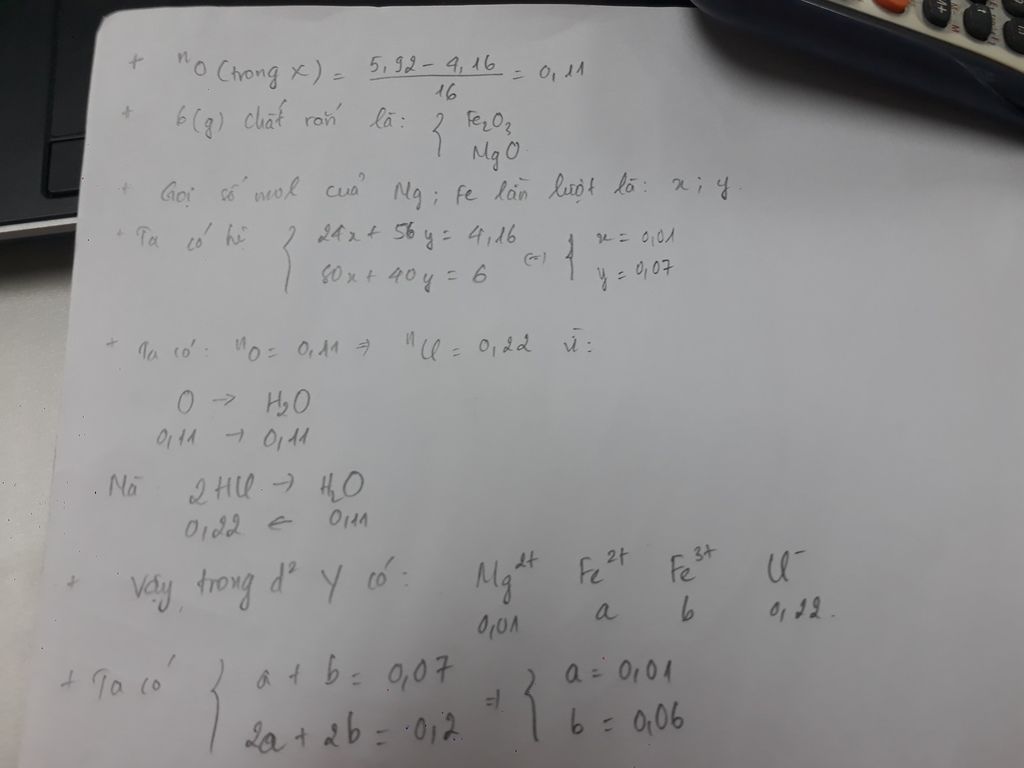 + nO (trong X) = (5,92 - 4,16)/16 = 0,11
+ 6(g) chất rắn là: { Fe2O3
MgO
+ Gọi số mol của Mg; Fe lần lượt là: x; y.
+ Ta có hệ { 24x + 56y = 4,16 (=) { x = 0,01
80x + 40y = 6 y = 0,07
+ Ta có: nO = 0,11 => nCl = 0,22 vì:
O -> H2O
0,11 -> 0,11
Mà 2HCl -> H2O
0,22 <- 0,11
+ Vậy, trong d² Y có: Mg2+ Fe2+ Fe3+ Cl-
0,01 a b 0,22.
+ Ta có { a + b = 0,07 => { a = 0,01
2a + 2b = 0,2 b = 0,06